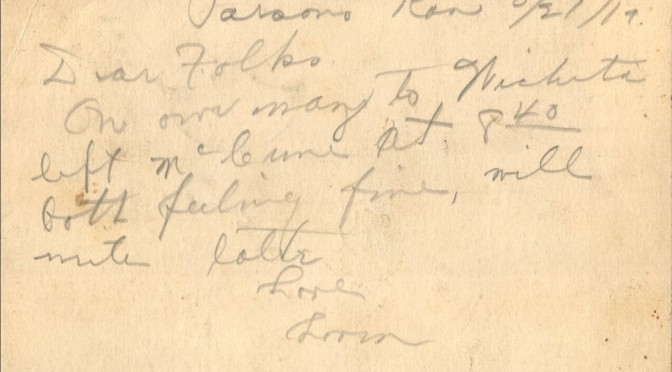 Parsons Kan /21/19.
Dear Folks
On our way to Wichita
left McCune at 8 40
both feeling fine, will
write later
Love